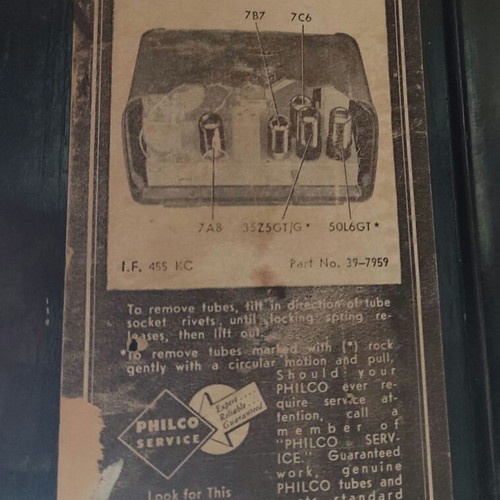 7B7 7C6
7A8 35Z5GT/G* 50L6GT*
I.F. 455 KC Part No. 39-7959
To remove tubes, tilt in direction of tube
socket rivets, until locking spring re-
leases, then lift out.
*To remove tubes marked with (*) rock
gently with a circular motion and pull.
Should your
PHILCO ever re-
quire service at-
tention, call a
member of
"PHILCO SERV-
ICE." Guaranteed
work, genuine
PHILCO tubes and
standard
Expert...
Reliable...
Guaranteed
PHILCO
SERVICE
Look for This